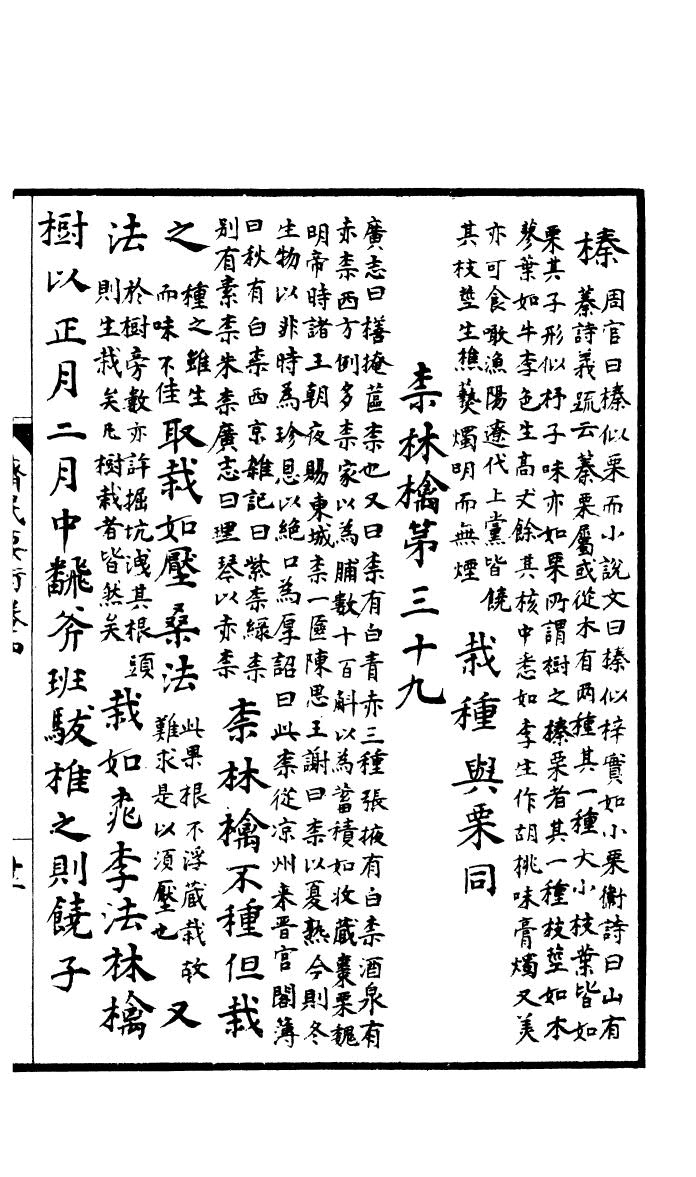 榛 周官曰榛似栗而小說文曰榛似梓實如小栗衞詩曰山有
蓁詩義疏云蓁栗屬或從木有两種其一種大小枝葉皆如
栗其子形似杼子味亦如栗所謂樹之榛栗者其一種枝莖如木
蓼葉如牛李色生高丈餘其核中悉如李生作胡桃味膏燭又美
亦可食噉漁陽遼代上黨皆饒
其枝莖生樵爇燭明而無煙 栽種與栗同
柰林檎第三十九
廣志曰橏掩蓲柰也又曰柰有白青赤三種張掖有白柰酒泉有
赤柰西方例多柰家以為脯數十百斛以為蓄積如收藏棗栗魏
明帝時諸王朝夜賜東城柰一匲陳思王謝曰柰以夏熟今則冬
生物以非時為珍恩以絶口為厚詔曰此柰從凉州来晋宫閣簿
曰秋有白柰西京雜記曰紫柰緑柰
别有素柰朱柰廣志曰理琴以赤柰 柰林檎不種但栽
之 種之雖生
而味不佳 取栽如壓桑法 此果根不浮薉栽故
難求是以湏壓也 又
法 於樹旁數亦許掘坑洩其根頭
則生栽矣凡樹栽者皆然矣 栽如桃李法林檎
樹以正月二月中翻斧班駁椎之則饒子
齊民要術卷四